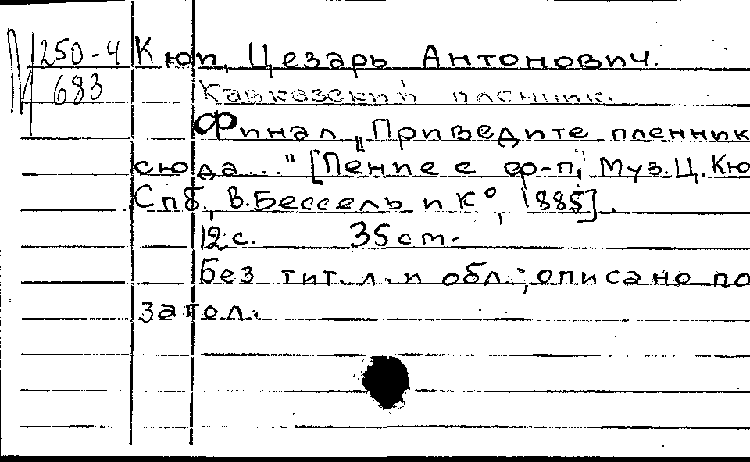 М 250-4 Кюи, Цезарь Антонович.
683 Кавказский пленник.
Финал „Приведите пленник
сюда..." [Пение с ф-п; Муз. Ц. Кю
Спб., В. Бессель и К°, 1885].
12 с. 35 см.
Без тит. л. и обл.; описано по
загол.